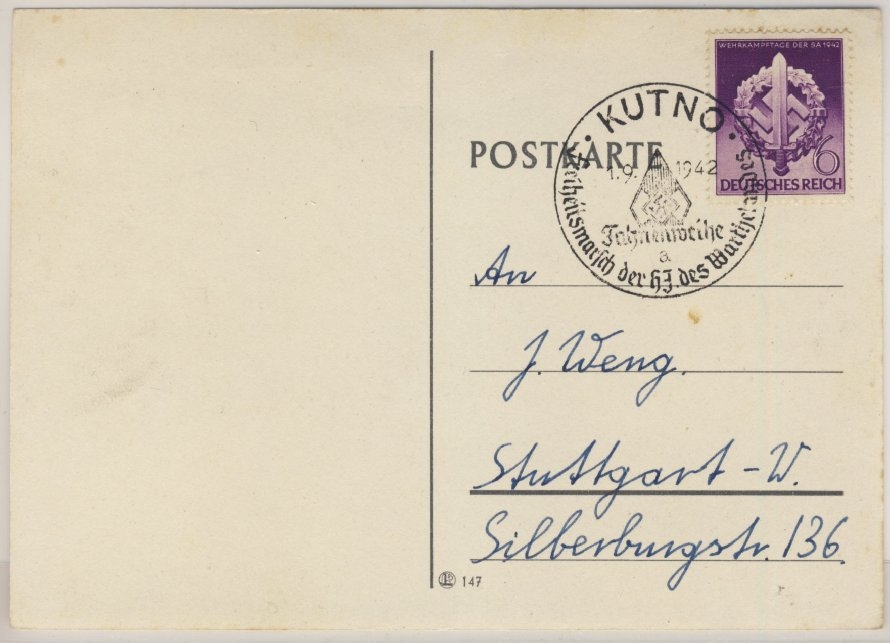 WEHRKAMPFTAGE DER SA 1942
6
DEUTSCHES REICH
POSTKARTE
KUTNO
1.9. 1942
Fahnenweihe
a
Freiheitsmarsch der HJ. des Warthelandes
An
J. Weng.
Stuttgart-W.
Silberburgstr. 136.
147